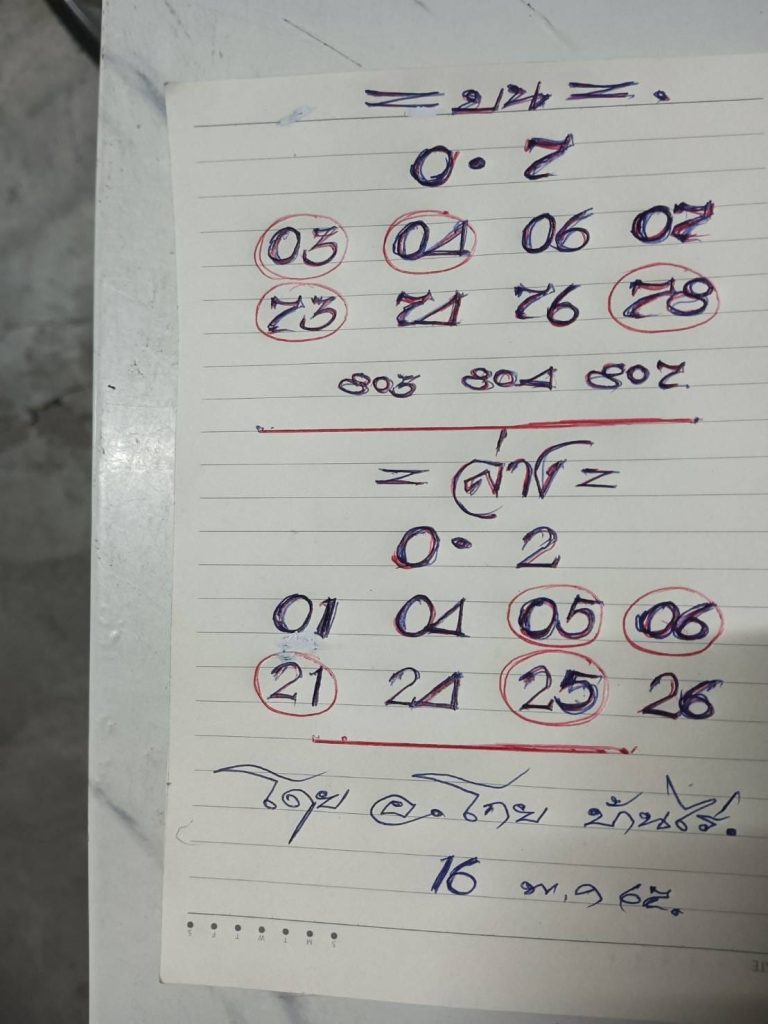 = บน =.
0 · 7
03 04 06 07
73 74 76 78
803 804 807
= ล่าง =
0 · 2
01 04 05 06
21 24 25 26
โดย อ.โทย บ้านไร่.
16 พ.ค 65.
S F T W T M S